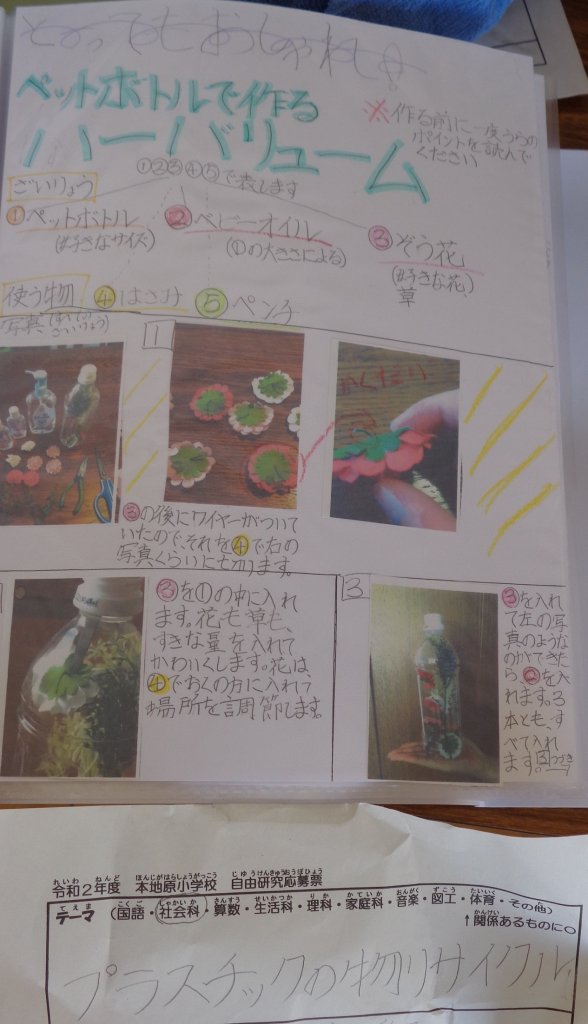 とってもおしゃれ!
ペットボトルで作る
ハーバリューム
※作る前に一度うらの
ポイントを読んで
ください
①②③④⑤で表します
ざいりょう
①ペットボトル
(好きなサイズ)
②ベビーオイル
(①の大きさによる)
③ぞう花
(好きな花、
草
使う物 ④はさみ ⑤ペンチ
写真
ざいりょう)
1
かくだい
③の後にワイヤーがついて
いたので、それを④で右の
写真くらいに切ります。
③を①の中に入れ
ます。花も草も、
すきな量を入れて
かわいくします。花は
④でおくの方に入れて
場所を調節します。
3
③を入れ
て左の写
真のような
のができた
ら、②を入
れます。3
本とも、す
べて入れ
ます。
つづき
令和2年度 本地原小学校 自由研究応募票
テーマ (国語・社会科・算数・生活科・理科・家庭科・音楽・図工・体育・その他)
↑関係あるものに○
プラスチックの物リサイクル